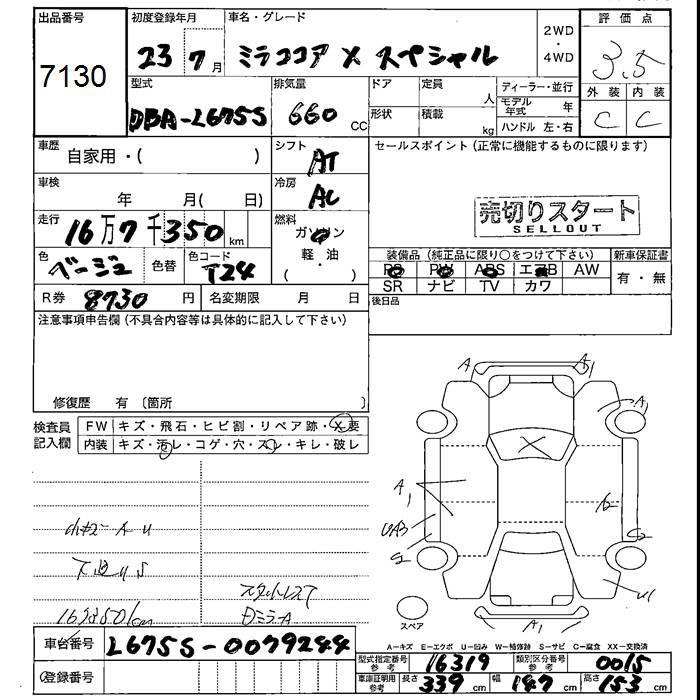 出品番号
7130
初度登録年月
23 7月
車名・グレード
ミラココア X スペシャル
2WD
・
4WD
評価点
3.5
外装 内装
C C
型式
DBA-L675S
排気量
660 CC
ドア 定員
人
形状 積載
kg
ディーラー・並行
モデル年式 年
ハンドル 左・右
車歴
自家用・( )
シフト
AT
セールスポイント(正常に機能するものに限ります)
車検
年 月( 日)
冷房
AC
売切りスタート
SELLOUT
走行
16万7千350km
燃料
ガソリン
軽・油
( )
色
ベージュ
色替
色コード
T24
装備品(純正品に限り○をつけて下さい)
PS PW ABS エアB AW
SR ナビ TV カワ
新車保証書
有・無
R券 8730 円
名変期限 月 日
後日品
注意事項申告欄(不具合内容等は具体的に記入して下さい)
修復歴 有(箇所 )
検査員記入欄
FW キズ・飛石・ヒビ割・リペア跡・X要
内装 キズ・汚レ・コゲ・穴・スレ・キレ・破レ
下廻りS
スタットレス7
DミラーA
A1
A1
A1
A1
A1
X
S2
S2
U1
スペア
A-キズ E-エクボ U-凹み W-補修跡 S-サビ C-腐食 XX-交換済
車台番号 L675S-0079244
登録番号
型式指定番号参考 16319
類別区分番号参考 0015
車庫証明用参考
長さ 339 cm
幅 147 cm
高さ 153 cm